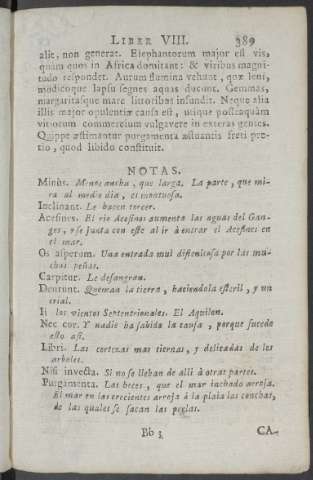 LIBER VIII. 389
alit, non generat. Elephantorum major est vis,
quàm quos in Africa domitant: & viribus magni-
tudo respondet. Aurum flumina vehunt, quæ leni,
modicoque lapsu segnes aquas ducunt. Gemmas,
margaritasque mare littoribus infundit. Neque alia
illis major opulentiæ causa est, utique postquàm
vitiorum commercium vulgavere in exteras gentes.
Quippe æstimantur purgamenta æstuantis freti pre-
tio, quod libido constituit.
NOTAS.
Minùs. Menos ancha, que larga. La parte, que mi-
ra al medio dia, es montuosa.
Inclinant. Le hacen torcer.
Acesines. El rio Acesinos aumenta las aguas del Gan-
ges, y se junta con este al ir à entrar el Acesines en
el mar.
Os asperum. Una entrada mui dificultosa por las mu-
chas peñas.
Carpitur. Le desangran.
Deurunt. Queman la tierra, haciendola esteril, y un
erial.
Ii los vientos Septentrionales. El Aquilon.
Nec cor. Y nadie ha sabido la causa, porque sucede
esto asi.
Libri. Las cortezas mas tiernas, y delicadas de los
arboles.
Nisi invecta. Si no se lleban de alli à otras partes.
Purgamenta. Las heces, que el mar inchado arroja.
El mar en las crecientes arroja à la plaia las conchas,
de las quales se sacan las perlas.
Bb 3 CA-